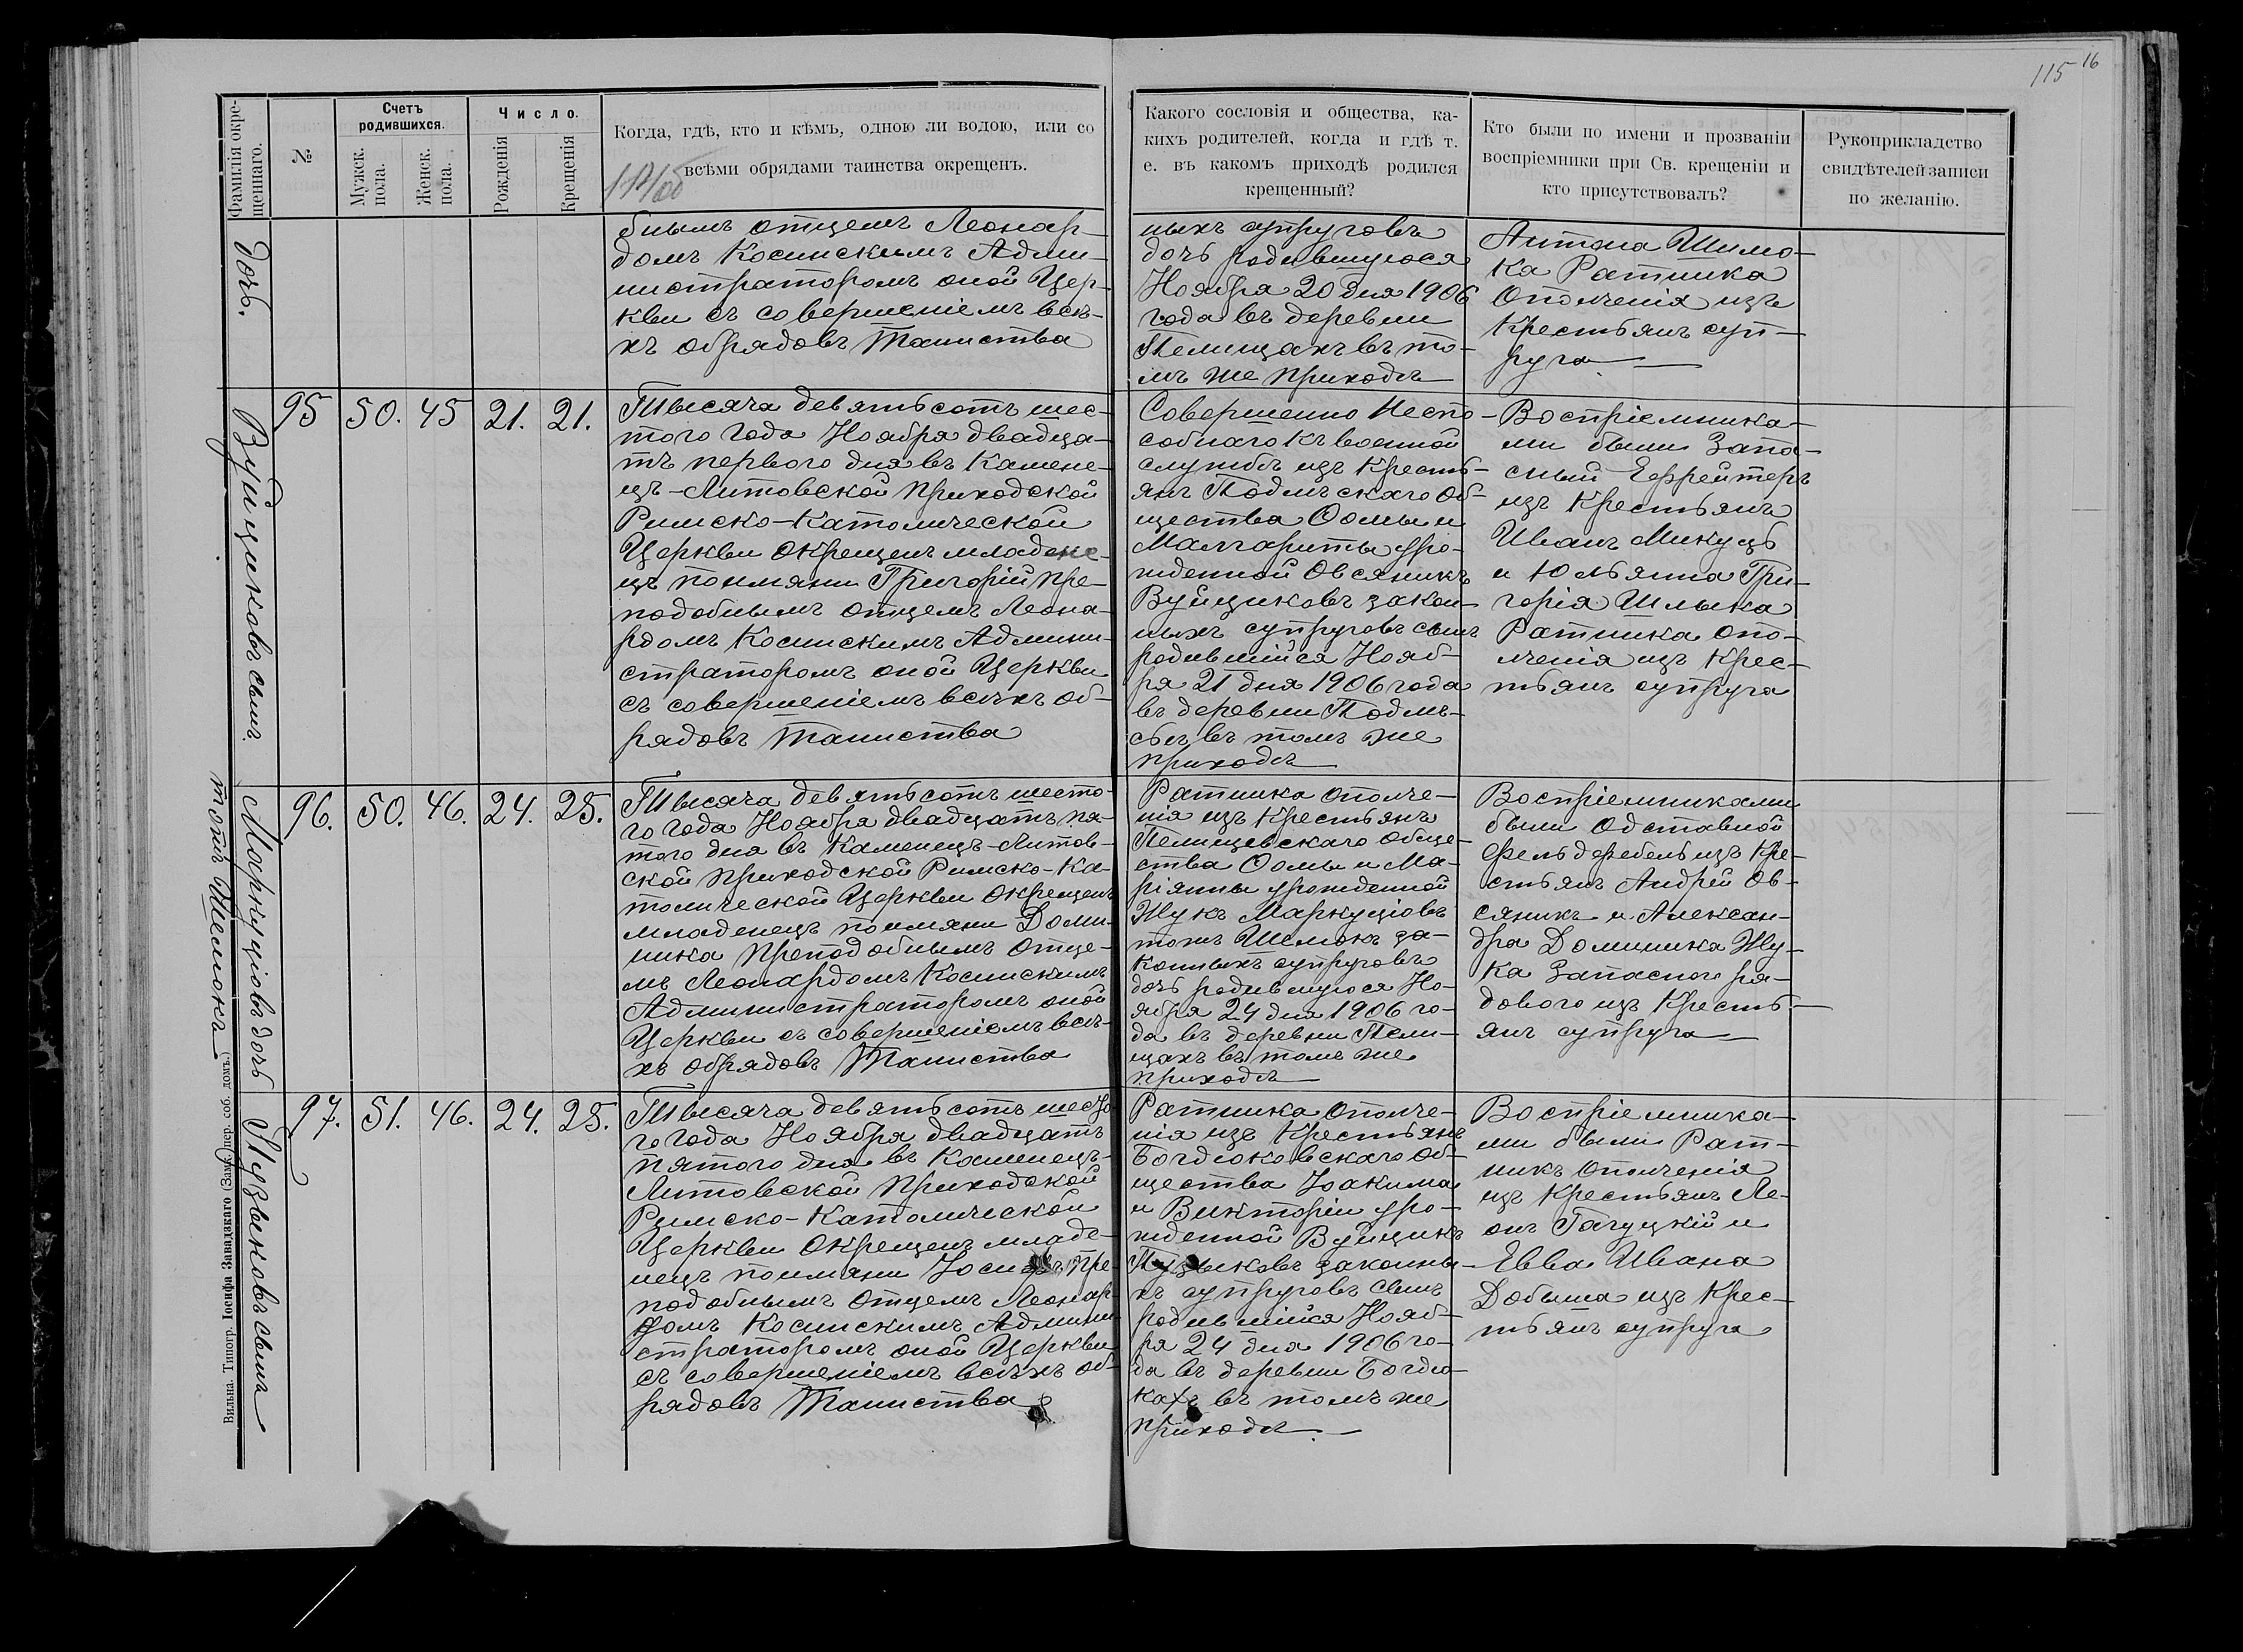 115 16
Фамилія окре-
щеннаго.
№
Счетъ
родившихся.
Мужск.
пола.
Женск.
пола.
Число.
Рожденія
Крещенія
Когда, гдѣ, кто и кѣмъ, одною ли водою, или со
всѣми обрядами таинства окрещенъ.
Какого сословія и общества, ка-
кихъ родителей, когда и гдѣ т.
е. въ какомъ приходѣ родился
крещенный?
Кто были по имени и прозванію
воспріемники при Св. крещеніи и
кто присутствовалъ?
Рукоприкладство
свидѣтелей записи
по желанію.
дочь.
бнымъ отцемъ Леонар-
домъ Косинскимъ Адми-
нистраторомъ оной Цер-
кви съ совершеніемъ всѣ-
хъ обрядовъ Таинства
ныхъ супруговъ
дочь родившуюся
Ноября 20 дня 1906
года въ деревни
Пелищахъ въ то-
мъ же приходѣ
Антона Шимо-
ка Ратника
Ополченія изъ
Крестьянъ суп-
руга
Вуйциковъ сынъ
95 50. 45 21. 21.
Тысяча девятьсотъ шес-
того года Ноября двадца-
тъ перваго дня въ Камене-
цъ-Литовской приходской
Римско-Католической
Церкви окрещенъ младене-
цъ поимяни Григорій пре-
подобнымъ отцемъ Леона-
рдомъ Косинскимъ Админи-
страторомъ оной Церкви
съ совершеніемъ всѣхъ об-
рядовъ Таинства
Совершенно Неспо-
собнаго къ военной
службѣ изъ Кресть-
янъ Подлѣскаго Об-
щества Ѳомы и
Малгариты уро-
жденной Овсяникъ
Вуйциковъ закон-
ныхъ супруговъ сынъ
родившійся Нояб-
ря 21 дня 1906 года
въ деревни Подлѣ-
сьѣ въ томъ же
приходѣ
Воспріемника-
ми были Запа-
сный Ефрейтеръ
изъ Крестьянъ
Иванъ Микуць
и Юльянна Гри-
горія Шлыка
Ратника опо-
лченія изъ Крес-
тьянъ супруга
Маркуціовъ дочь
тожъ Шемокъ
96. 50. 46. 24. 25.
Тысяча девятьсотъ шесто-
го года Ноября двадцатъ пя-
того дня въ Каменецъ-Литов-
ской приходской Римско-Ка-
толической Церкви окрещенъ
младенецъ поимяни Доми-
ника преподобнымъ отце-
мъ Леонардомъ Косинскимъ
Администраторомъ оной
Церкви съ совершеніемъ всѣ-
хъ обрядовъ Таинства
Ратника ополче-
нія изъ Крестьянъ
Пелищевскаго обще-
ства Ѳомы и Ма-
ріянны урожденной
Жукъ Маркуціовъ
тожъ Шемокъ за-
конныхъ супруговъ
дочь родившуюся Но-
ября 24 дня 1906 го-
да въ деревни Пели-
щахъ въ томъ же
приходѣ
Воспріемниками
были Одставной
Фельдфебель изъ Кре-
стьянъ Андрей Ов-
сяникъ и Алексан-
дра Доминика Жу-
ка Запаснаго ря-
дового изъ Кресть-
янъ супруга
Пузыковъ сынъ
97. 51. 46. 24. 25.
Тысяча девятьсотъ шесто-
го года Ноября двадцатъ
пятого дня въ Каменецъ-
Литовской Приходской
Римско-Католической
Церкви окрещенъ младе-
нецъ поимяни Іосифъ пре-
подобнымъ отцемъ Леонар-
домъ Косинскимъ Админи-
страторомъ оной Церкви
съ совершеніемъ всѣхъ об-
рядовъ Таинства
Ратника Ополче-
нія изъ Крестьянъ
Богдюковскаго Об-
щества Іоакима
и Викторіи уро-
жденной Вуйцикъ
Пузыковъ законны-
хъ супруговъ сынъ
родившійся Нояб-
ря 24 дня 1906 го-
да въ деревни Богдю-
кахъ въ томъ же
приходѣ
Воспріемника-
ми были Рат-
никъ Ополченія
изъ Крестьянъ Ле-
онъ Гагуцкій и
Евва Ивана
Добыша изъ Крес-
тьянъ супруга
Вильна. Типогр. Іосифа Завадзкаго (Замк. пер. соб. домъ.)